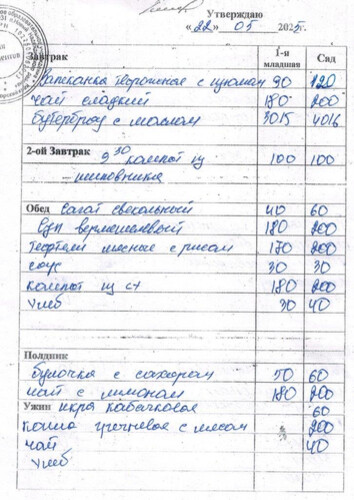 Утверждаю
«22» 05 2025г.
Завтрак 1-я младшая Сад
Запеканка творожная с изюмом 90 120
чай сладкий 180 200
бутерброд с маслом 30/5 40/6
2-ой Завтрак 9 30 компот из 100 100
шиповника
Обед Салат свекольный 40 60
Суп вермишелевый 180 200
тефтели мясные с рисом 170 200
соус 30 30
компот из с/х 180 200
хлеб 30 40
Полдник
булочка с сахаром 50 60
чай с лимоном 180 200
Ужин икра кабачковая 60
каша гречневая с мясом 200
чай 40
хлеб